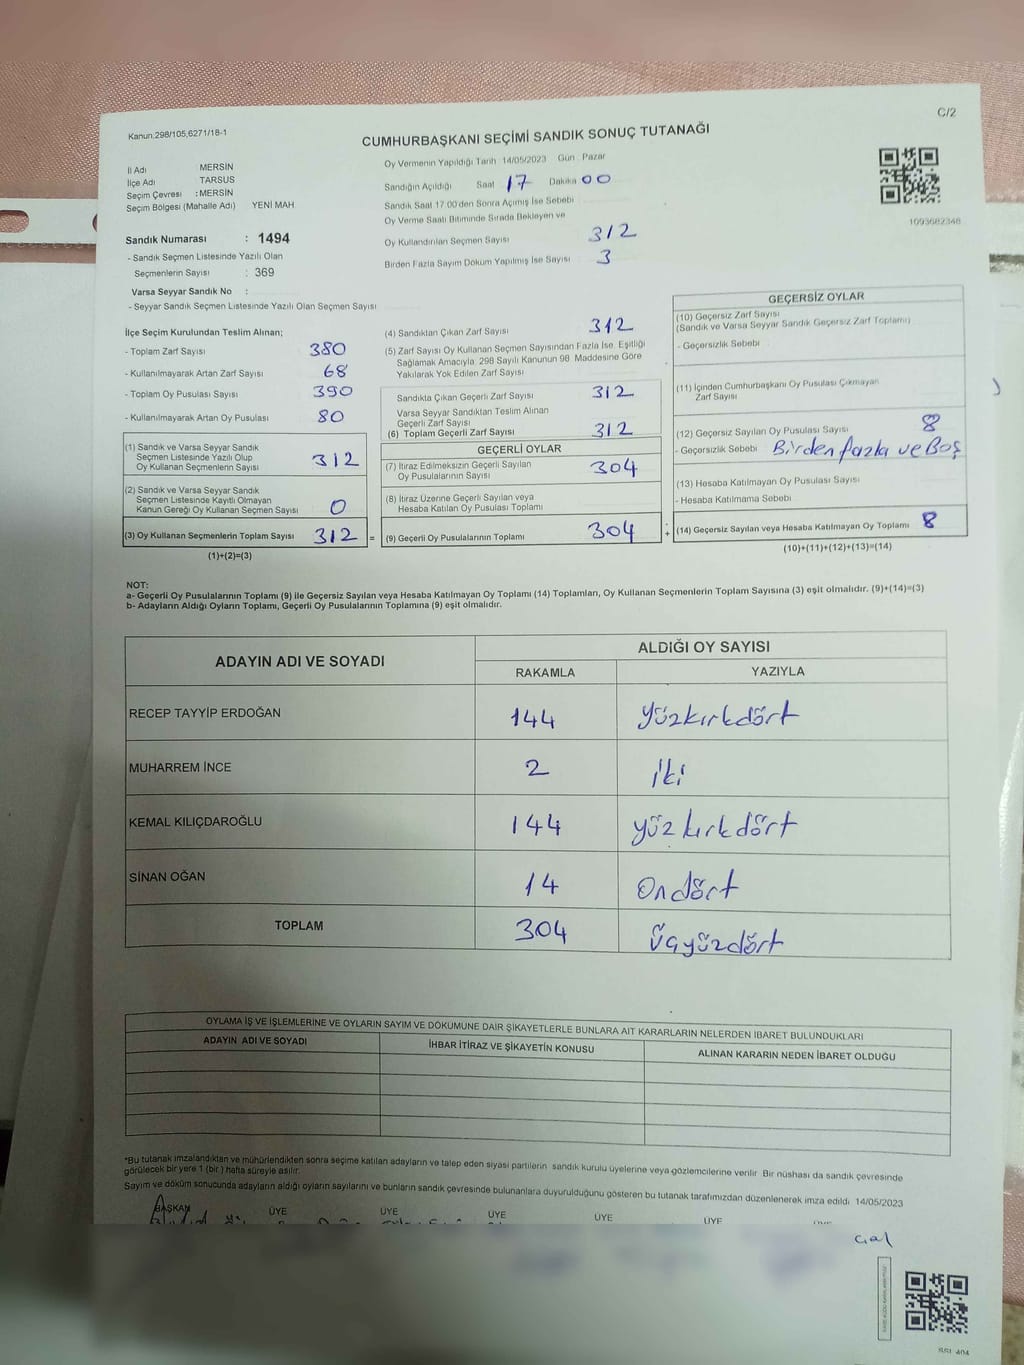 C/2
Kanun,298/105,6271/18-1
CUMHURBAŞKANI SEÇİMİ SANDIK SONUÇ TUTANAĞI
İl Adı MERSİN
İlçe Adı TARSUS
Seçim Çevresi : MERSİN
Seçim Bölgesi (Mahalle Adı) YENİ MAH
Sandık Numarası : 1494
- Sandık Seçmen Listesinde Yazılı Olan
Seçmenlerin Sayısı : 369
Varsa Seyyar Sandık No :
- Seyyar Sandık Seçmen Listesinde Yazılı Olan Seçmen Sayısı
Oy Vermenin Yapıldığı Tarih 14/05/2023 Gün Pazar
Sandığın Açıldığı Saat 17 Dakika 00
Sandık Saat 17 00'den Sonra Açımış İse Sebebi
Oy Verme Saati Bitiminde Sırada Bekleyen ve
Oy Kullandırılan Seçmen Sayısı 312
Birden Fazla Sayım Döküm Yapılmış İse Sayısı 3
1093682348
İlçe Seçim Kurulundan Teslim Alınan;
- Toplam Zarf Sayısı 380
- Kullanılmayarak Artan Zarf Sayısı 68
- Toplam Oy Pusulası Sayısı 390
- Kullanılmayarak Artan Oy Pusulası 80
(1) Sandık ve Varsa Seyyar Sandık
Seçmen Listesinde Yazılı Olup
Oy Kullanan Seçmenlerin Sayısı 312
(2) Sandık ve Varsa Seyyar Sandık
Seçmen Listesinde Kayıtlı Olmayan
Kanun Gereği Oy Kullanan Seçmen Sayısı 0
(3) Oy Kullanan Seçmenlerin Toplam Sayısı 312 =
(1)+(2)=(3)
(4) Sandıktan Çıkan Zarf Sayısı 312
(5) Zarf Sayısı Oy Kullanan Seçmen Sayısından Fazla İse, Eşitliği
Sağlamak Amacıyla, 298 Sayılı Kanunun 98. Maddesine Göre
Yakılarak Yok Edilen Zarf Sayısı
Sandıkta Çıkan Geçerli Zarf Sayısı 312
Varsa Seyyar Sandıktan Teslim Alınan
Geçerli Zarf Sayısı
(6) Toplam Geçerli Zarf Sayısı 312
GEÇERLİ OYLAR
(7) İtiraz Edilmeksizin Geçerli Sayılan
Oy Pusulasının Sayısı 304
(8) İtiraz Üzerine Geçerli Sayılan veya
Hesaba Katılan Oy Pusulası Toplamı
(9) Geçerli Oy Pusulalarının Toplamı 304
GEÇERSİZ OYLAR
(10) Geçersiz Zarf Sayısı
(Sandık ve Varsa Seyyar Sandık Geçersiz Zarf Toplamı)
- Geçersizlik Sebebi
(11) İçinden Cumhurbaşkanı Oy Pusulası Çıkmayan
Zarf Sayısı
(12) Geçersiz Sayılan Oy Pusulası Sayısı 8
- Geçersizlik Sebebi Birden fazla ve Boş
(13) Hesaba Katılmayan Oy Pusulası Sayısı
- Hesaba Katılmama Sebebi
(14) Geçersiz Sayılan veya Hesaba Katılmayan Oy Toplamı 8
(10)+(11)+(12)+(13)=(14)
NOT:
a- Geçerli Oy Pusulalarının Toplamı (9) ile Geçersiz Sayılan veya Hesaba Katılmayan Oy Toplamı (14) Toplamları, Oy Kullanan Seçmenlerin Toplam Sayısına (3) eşit olmalıdır. (9)+(14)=(3)
b- Adayların Aldığı Oyların Toplamı, Geçerli Oy Pusulalarının Toplamına (9) eşit olmalıdır.
ADAYIN ADI VE SOYADI
ALDIĞI OY SAYISI
RAKAMLA YAZIYLA
RECEP TAYYİP ERDOĞAN 144 yüzkırkdört
MUHARREM İNCE 2 iki
KEMAL KILIÇDAROĞLU 144 yüzkırkdört
SİNAN OĞAN 14 Ondört
TOPLAM 304 Üçyüzdört
OYLAMA İŞ VE İŞLEMLERİNE VE OYLARIN SAYIM VE DÖKÜMÜNE DAİR ŞİKAYETLERLE BUNLARA AİT KARARLARIN NELERDEN İBARET BULUNDUKLARI
ADAYIN ADI VE SOYADI İHBAR İTİRAZ VE ŞİKAYETİN KONUSU ALINAN KARARIN NEDEN İBARET OLDUĞU
*Bu tutanak imzalandıktan ve mühürlendikten sonra seçime katılan adayların ve talep eden siyasi partilerin sandık kurulu üyelerine veya gözlemcilerine verilir Bir nüshası da sandık çevresinde
görülecek bir yere 1 (bir ) hafta süreyle asılır.
Sayım ve döküm sonucunda adayların aldığı oyların sayılarını ve bunların sandık çevresinde bulunanlara duyurulduğunu gösteren bu tutanak tarafımızdan düzenlenerek imza edildi 14/05/2023
BAŞKAN ÜYE ÜYE ÜYE ÜYE ÜYE